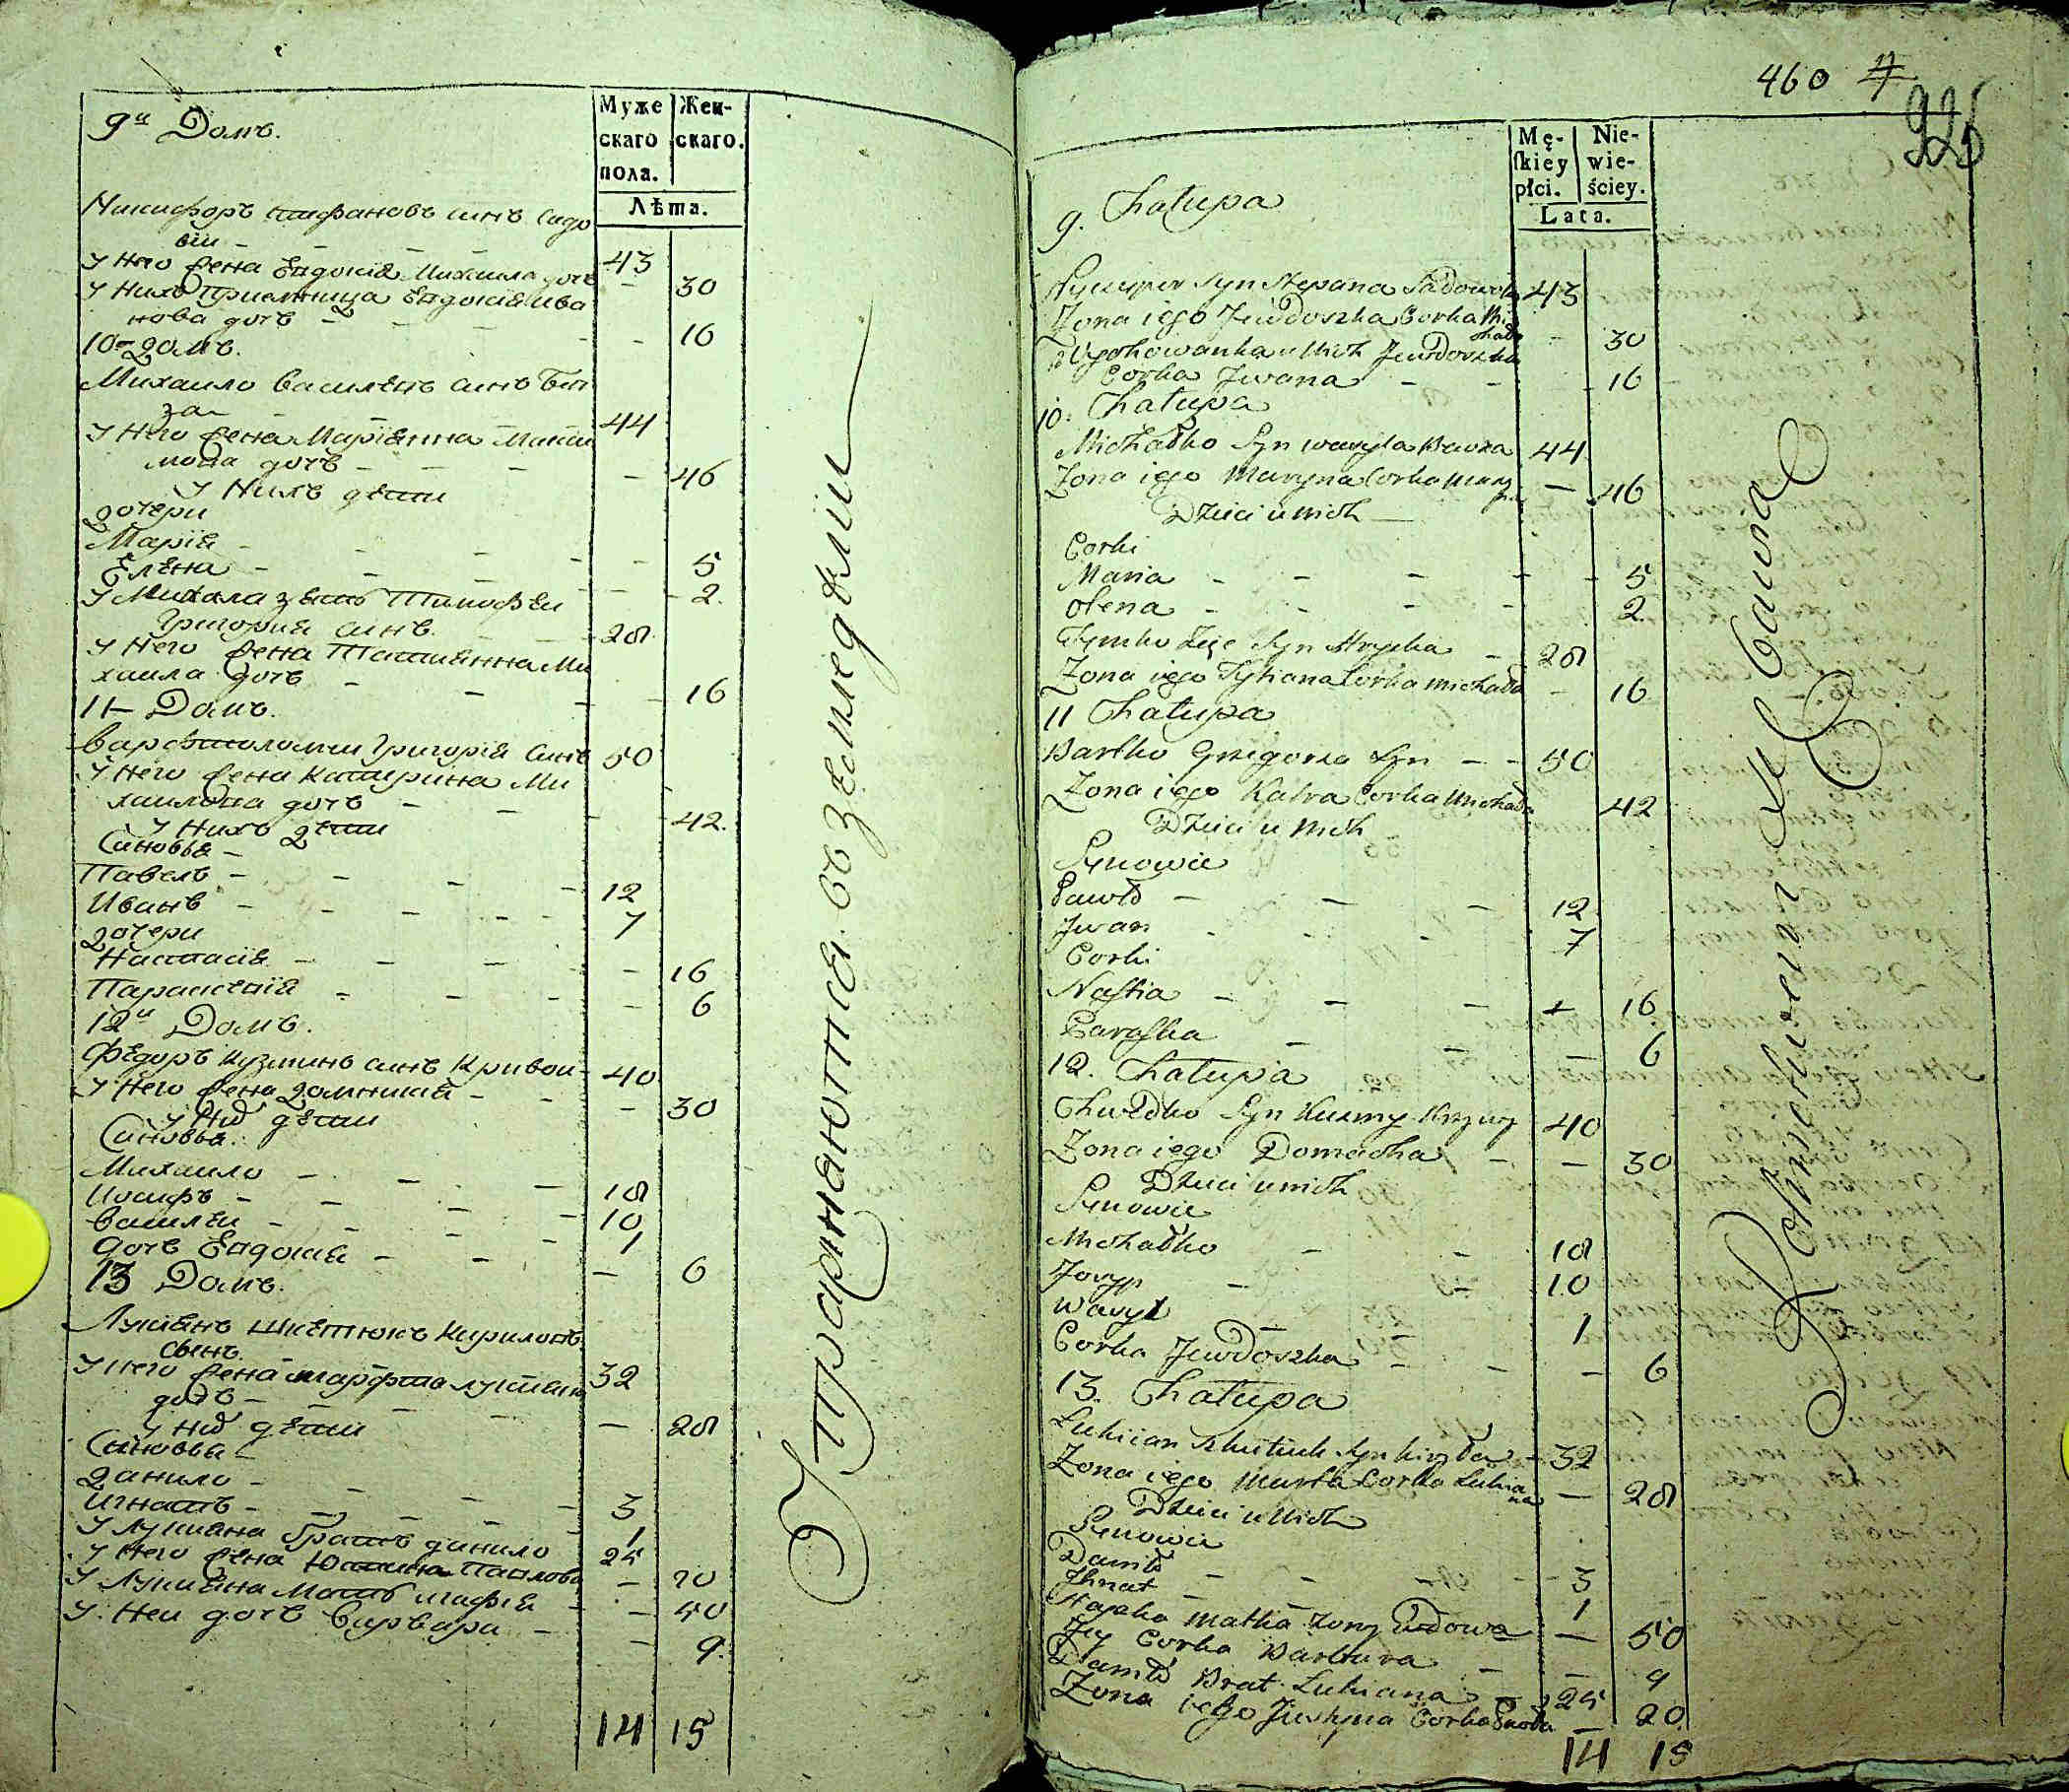 9й Домъ.
Муже Жен-
скаго скаго.
пола.
Лѣта.
Никифоръ стефановъ синъ Садо
вій - - - - 43
У Него жена Евдокія Михаила дочь - 30
У Нихъ приемница Евдокія ива
нова дочь - - - - 16
10- домъ.
Михаило василевъ синъ Бау
за - - - 44
У Него жена Маріянна
дочь - - - - 46
У Нихъ дѣти
дочери
Марія - - - - 5
Елена - - - - 2.
У Михала зять Тимофѣй
Григорія синъ. - - 28
У Него жена Татіянна Ми
хаила дочь - - - - 16
11- Домъ.
варфоломей Григорія Синъ 50
У Него жена Катерина Ми
хаилова дочь - - - - 42.
У Нихъ дѣти
Синовья -
Павелъ - - - - 12
Иванъ - - - - - 7
дочери
Настасія - - - - 16
Параскевія - - - - 6
12й Домъ.
Федоръ Кузминъ синъ Кривои - 40
У Него жена домникія - - - 30
У Них дѣти
Синовья.
Михаило - - - 18
Иосифъ - - - - 10
василѣи - - - - 1
дочь Евдокія - - - - 6
13 Домъ.
Лукіянъ Шкетюкъ Кириловъ
сынъ. 32
У Него жена марфа лукіян
дочь - - - 28
У Них дѣти
Синовья -
данило - - - - 3
Игнатъ - - - - 1
У Лукіана братъ данило 25
У Него жена Юстина Павлова - 20
У Лукіяна Мать - - 50
У Неи дочь Варвара - - 9.
14 15
Упражняются въ земледѣліи
460 7
925
Mę- Nie-
skiey wie-
płci. ściey.
Lata.
9. Chałupa
Nyczypor syn Stepana Sadowski 43
Zona iego Jewdoszka Corka Mi
chała - 30
Wychowanka u Nich Jewdoszka
Corka Jwana - - - 16
10. Chałupa
Michałko Syn wasyla Bauza 44
Zona iego Maryna Corka - 46
Dzieci u nich -
Corki
Maria - - - - - 5
Olena - - - - 2.
Tymko Zięć Syn Hryćka - 28
Zona iego Tytiana Corka michała - 16
11 Chałupa
Bartko Grzegorza Syn - - 50
Zona iego Katra Corka Michała 42
Dzieci u Nich
Synowie
Pawło - - - 12
Jwan - - - 7
Corki
Nastia - - - - 16
Paraska - - - 6
12. Chałupa
Chwedko Syn Kuzmy Krzywy 40
Zona iego Domacha - - 30
Dzieci u nich
Synowie
Michałko - - 18
Josyp - - 10
Wasyl - - 1
Corka Jewdoszka - - - 6
13. Chałupa
Lukiian Szkietiuk Syn kiryła - 32
Zona iego Marta Corka Lukia
na - 28
Dzieci u Nich
Synowie
Daniło - - - - 3
Jhnat - - - 1
matka zony Wdowa - 50
Jey Corka Barbara - - 9
Daniło Brat Lukiana - 25
Zona iego Justyna Corka Pawła - 20
14 15
Rolnictwem się bawią